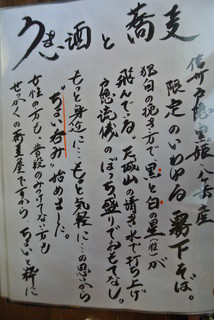 うまい酒と蕎麦
信州戸隠黒姫八茶屋
限定のいわゆる霧下そば。
独自の挽き方で(黒)と白の星(雅)が
飛んでる。天城山の清き水で打ち上げ
戸隠流儀のぼっち盛でおもてなし。
もっと身近に…もっと気軽に…の思いから
"ちょい呑み"始めました。
女性の方も、普段のみつけてない方も
せっかくの蕎麦屋ですから ちょいと粋に